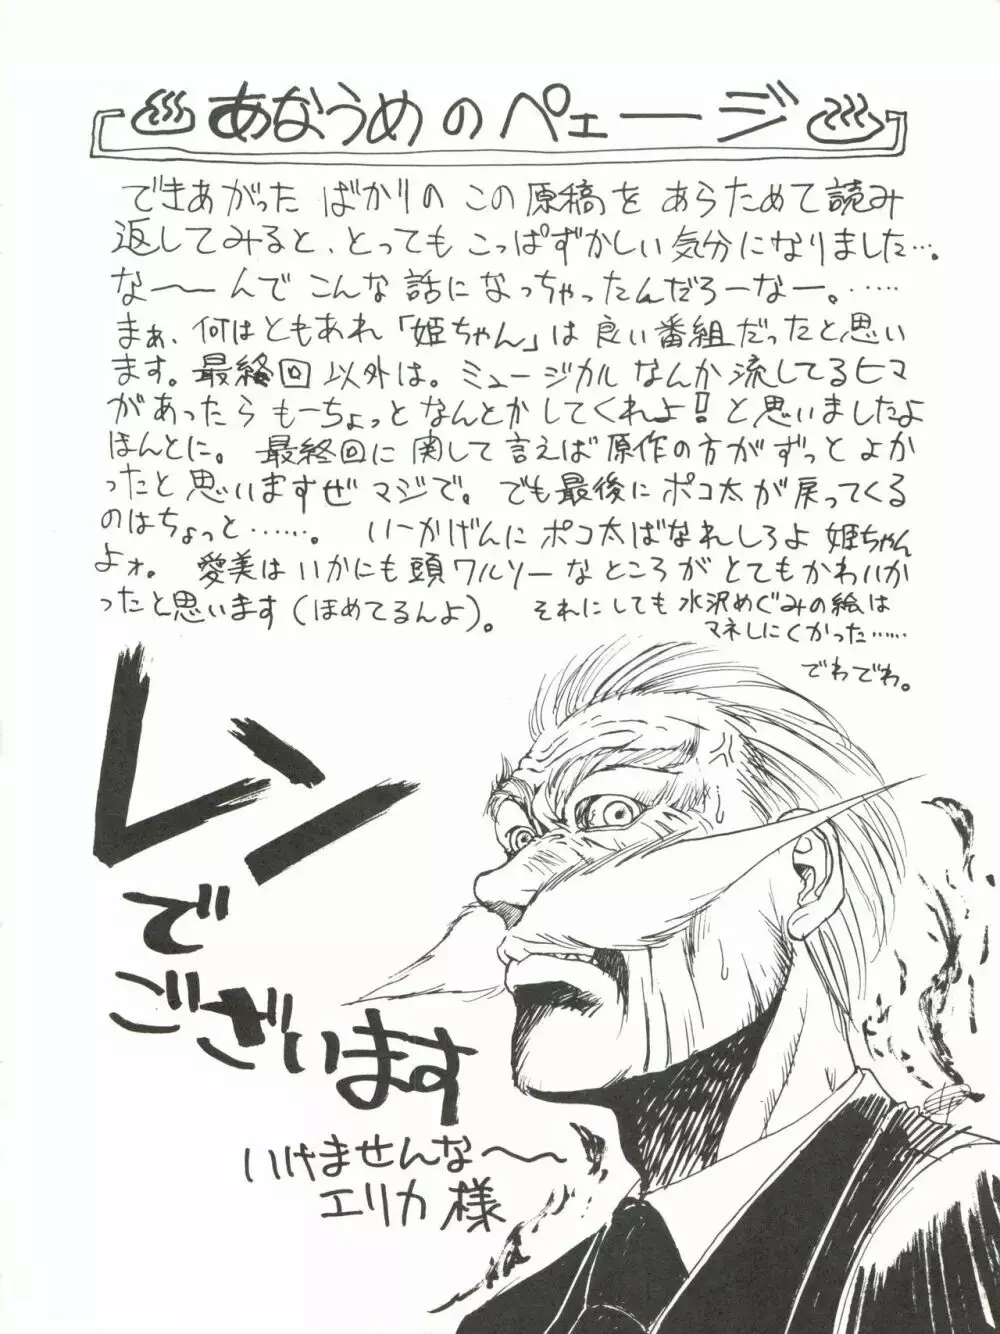 あなうめのペェージ
できあがったばかりのこの原稿をあらためて読み
返してみると、とってもこっぱずかしい気分になりました…。
な〜〜んでこんな話になっちゃったんだろーなー。……
まぁ、何はともあれ「姫ちゃん」は良い番組だったと思い
ます。最終回以外は。ミュージカルなんか流してるヒマ
があったらもーちょっとなんとかしてくれよ!と思いましたよ
ほんとに。最終回に関して言えば原作の方がずっとよか
ったと思いますぜマジで。でも最後にポコ太が戻ってくる
のはちょっと……。いーかげんにポコ太ばなれしろよ姫ちゃん
よォ。愛美はいかにも頭ワルソーなところがとてもかわいか
ったと思います(ほめてるんよ)。それにしても水沢めぐみの絵は
マネしにくかった……
でわでわ。
レン
で
ございます
いけませんな〜〜
エリカ様